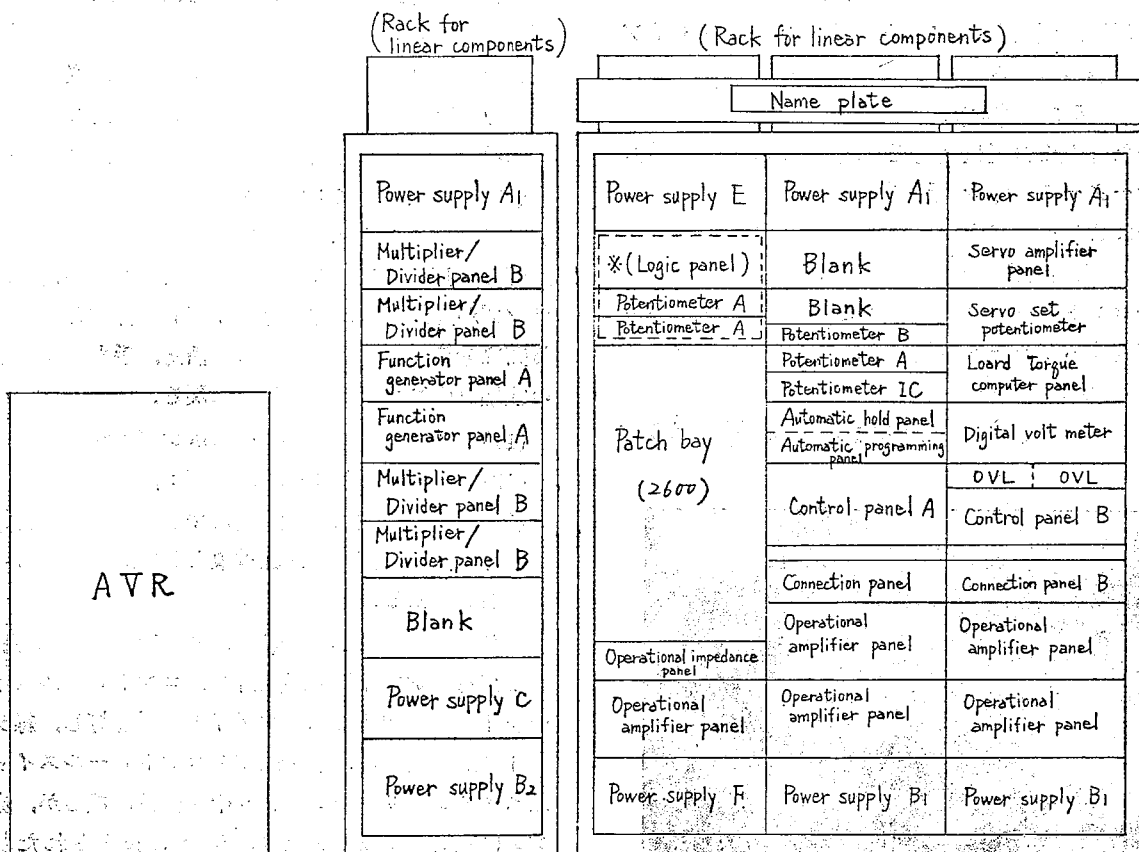 (Rack for
linear components)
(Rack for linear components)
Name plate
AVR
Power supply A1
Multiplier/
Divider panel B
Multiplier/
Divider panel B
Function
generator panel A
Function
generator panel A
Multiplier/
Divider panel B
Multiplier/
Divider panel B
Blank
Power supply C
Power supply B2
Power supply E
※(Logic panel)
Potentiometer A
Potentiometer A
Patch bay
(2600)
Operational impedance
panel
Operational
amplifier panel
Power supply F
Power supply A1
Blank
Blank
Potentiometer B
Potentiometer A
Potentiometer IC
Automatic hold panel
Automatic programming
panel
Control panel A
Connection panel
Operational
amplifier panel
Operational
amplifier panel
Power supply B1
Power supply A1
Servo amplifier
panel
Servo set
potentiometer
Loard Torque
computer panel
Digital volt meter
OVL OVL
Control panel B
Connection panel B
Operational
amplifier panel
Operational
amplifier panel
Power supply B1